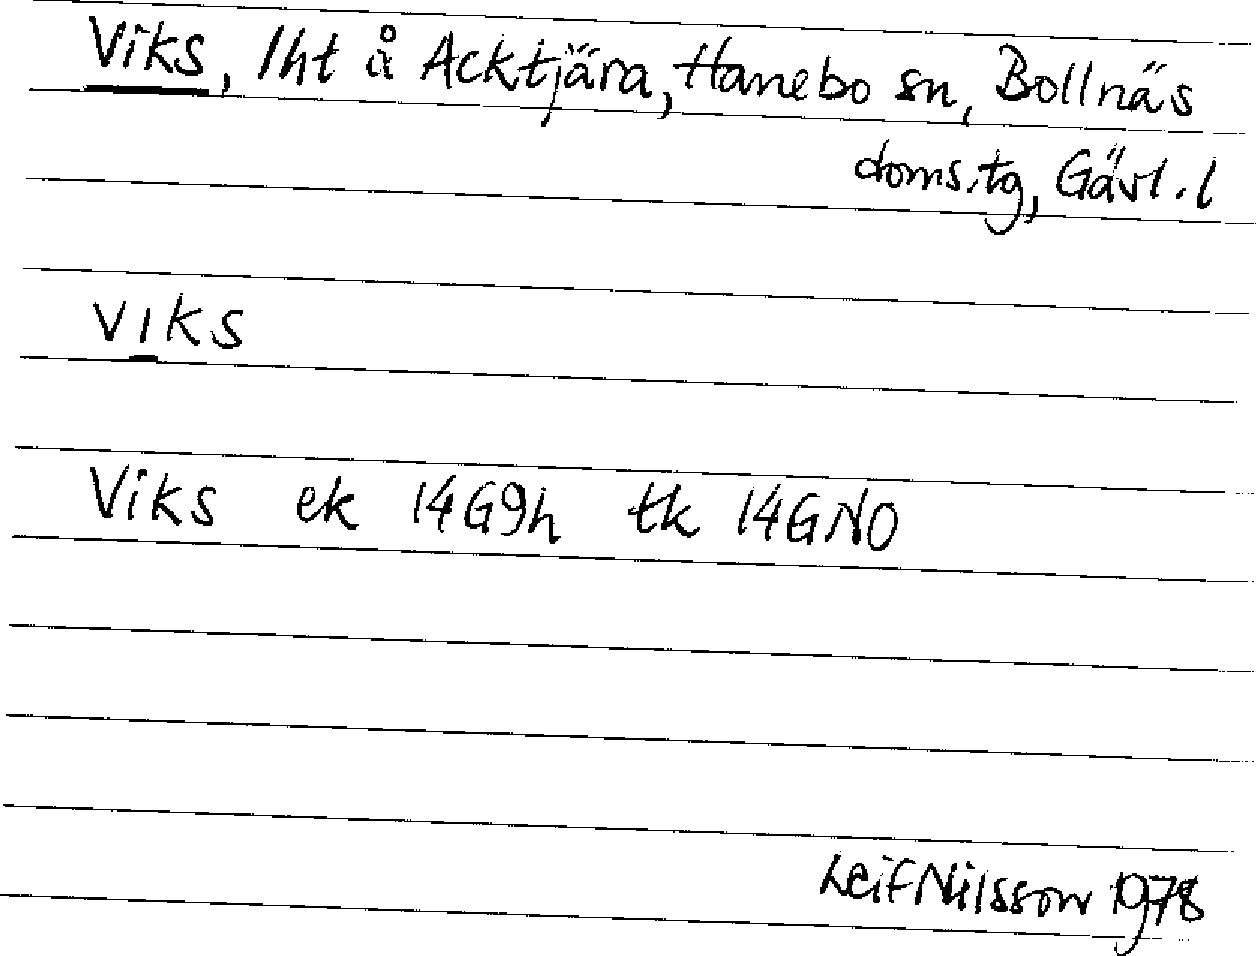 Viks, lht å Acktjära, Hanebo sn, Bollnäs
doms.tg, Gävl.l
viks
Viks ek 14G9h tk 14GNO
Leif Nilsson 1978